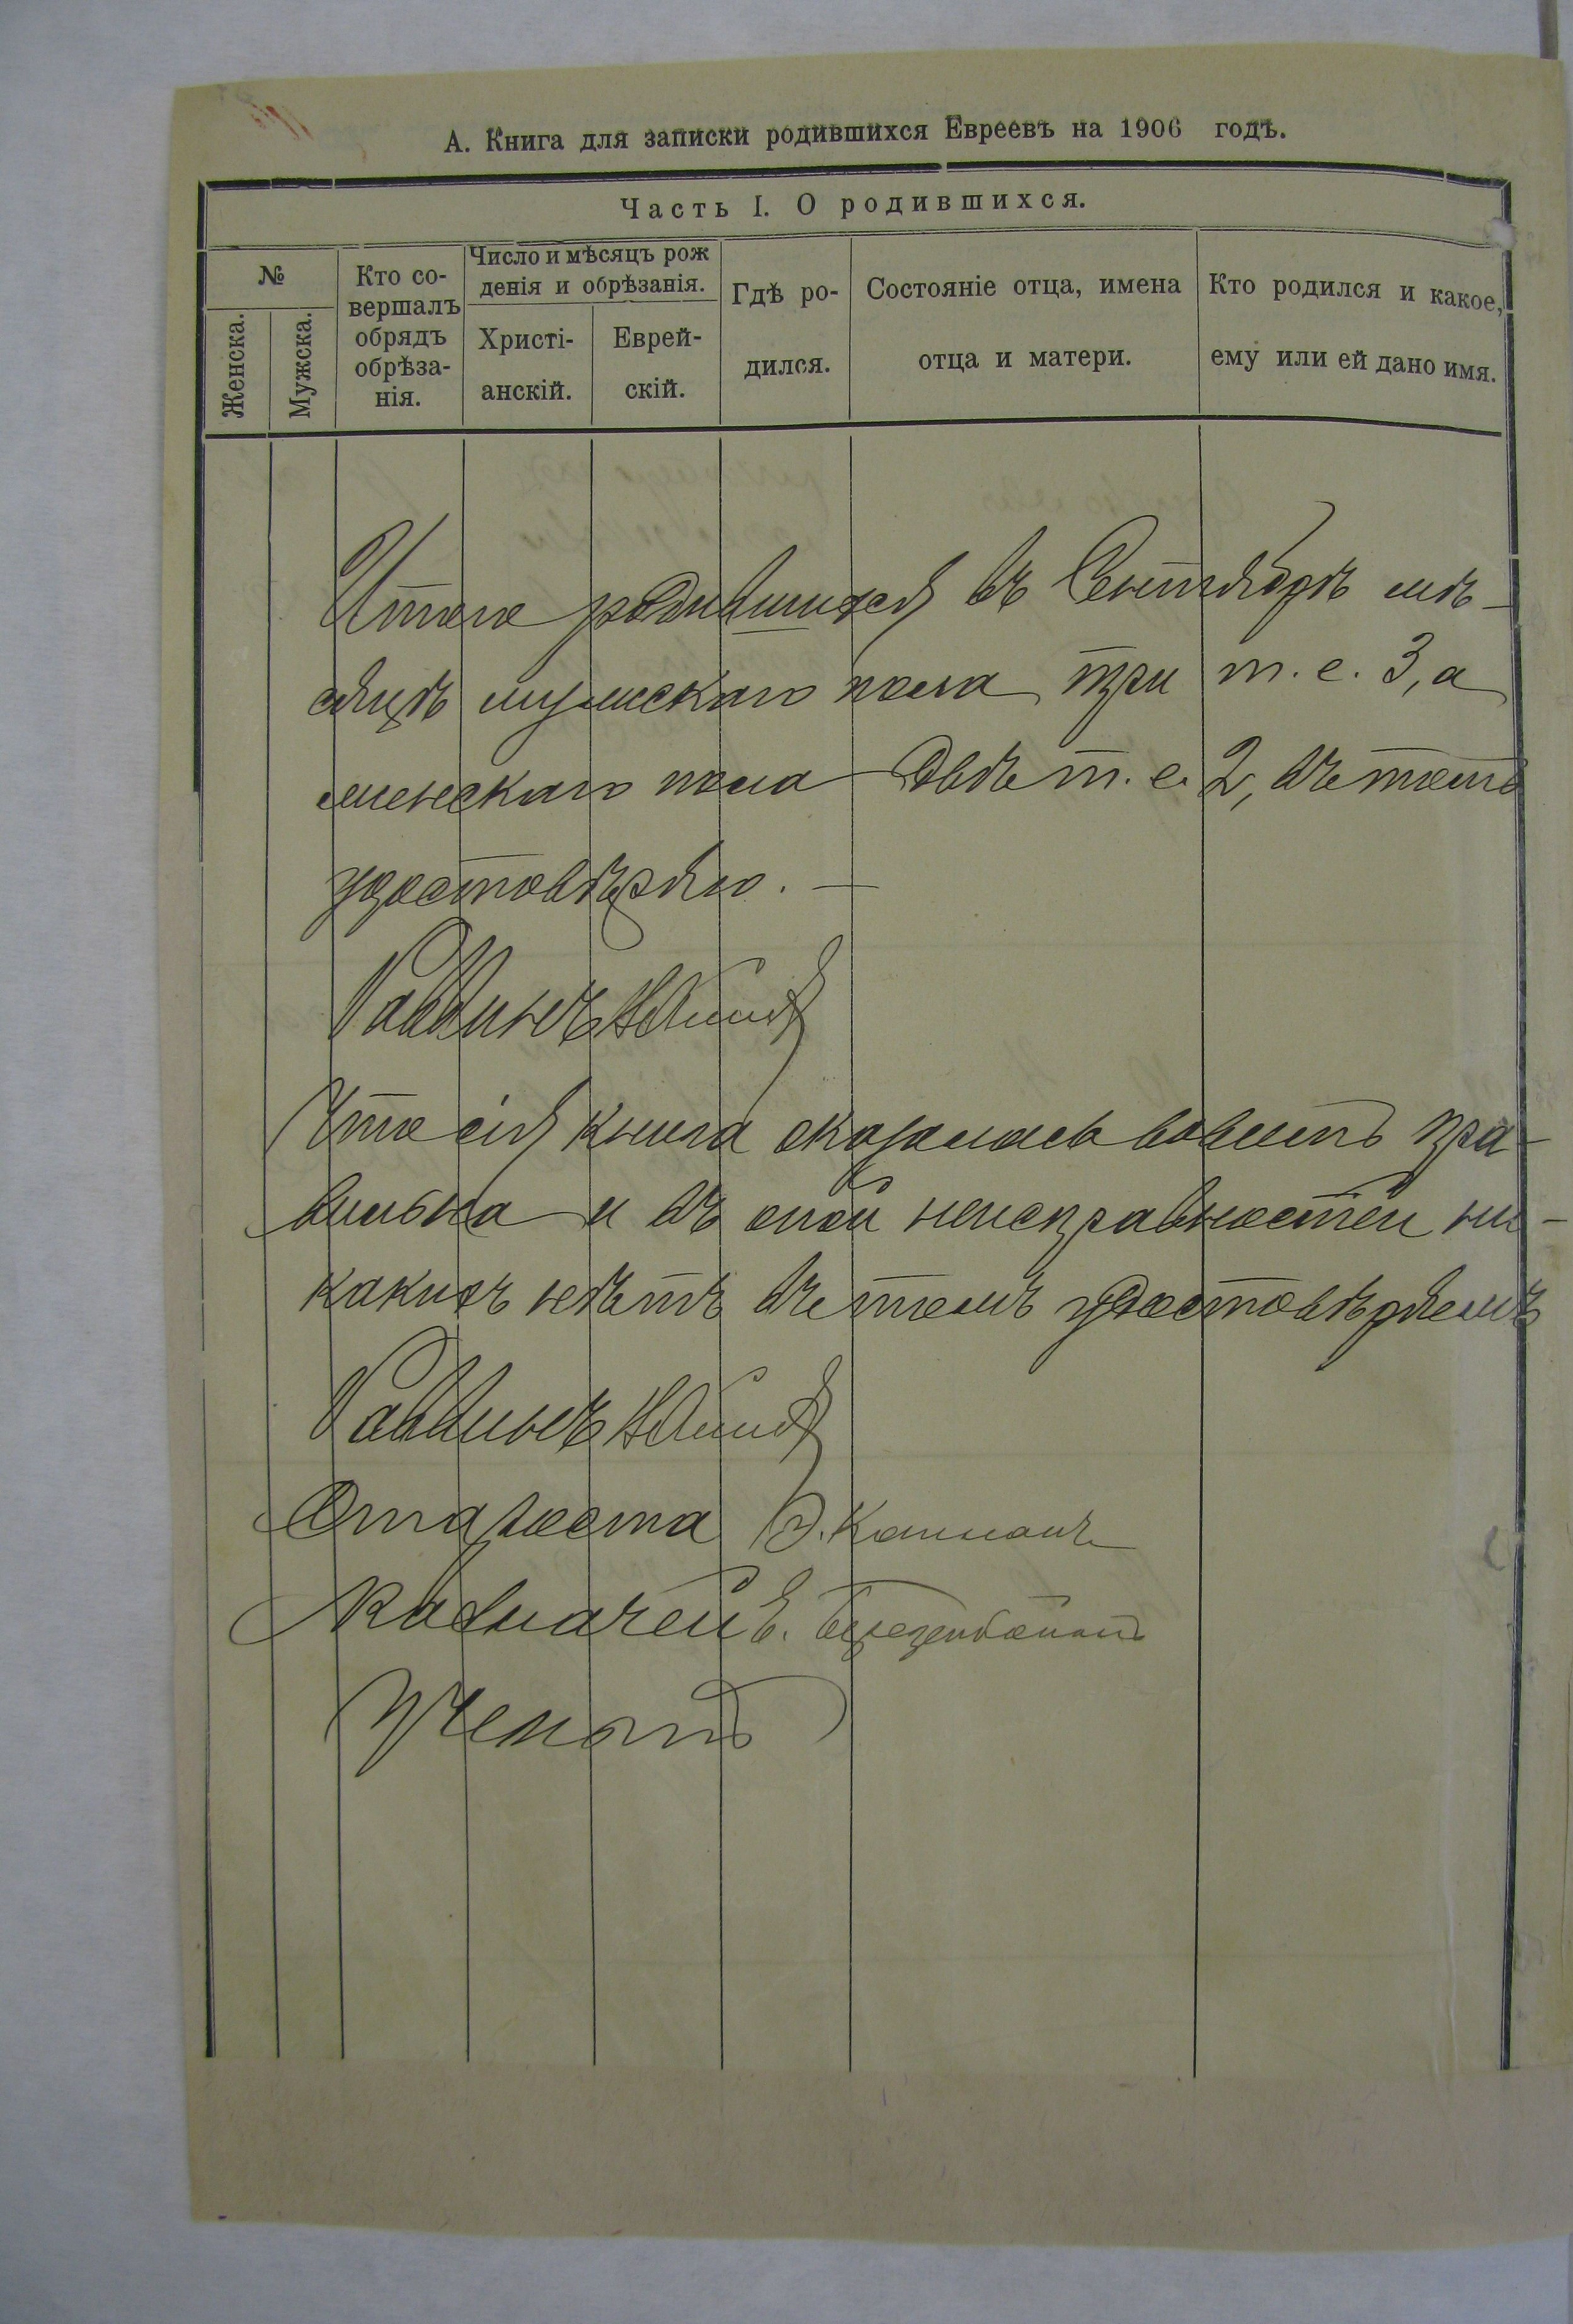 А. Книга для записки родившихся Евреевъ на 1906 годъ.
Часть I. О родившихся.
№
Женска.
Мужска.
Кто со-
вершалъ
обрядъ
обрѣза-
нія.
Число и мѣсяцъ рож
денія и обрѣзанія.
Христі-
анскій.
Еврей-
скій.
Гдѣ ро-
дился.
Состояніе отца, имена
отца и матери.
Кто родился и какое,
ему или ей дано имя.
Итого родившихся въ Сентябрѣ мѣ-
сяцѣ мужскаго пола три т. е. 3, а
женскаго пола двѣ т. е. 2, въ томъ
удостовѣряю. —
Раввинъ
Что сія книга оказалась вовсемъ пра-
вильна и въ оной неисправностей ни-
какихъ нѣтъ въ томъ удостовѣряемъ
Раввинъ
Староста Э. Каплан
Казначей Е.
Ученый